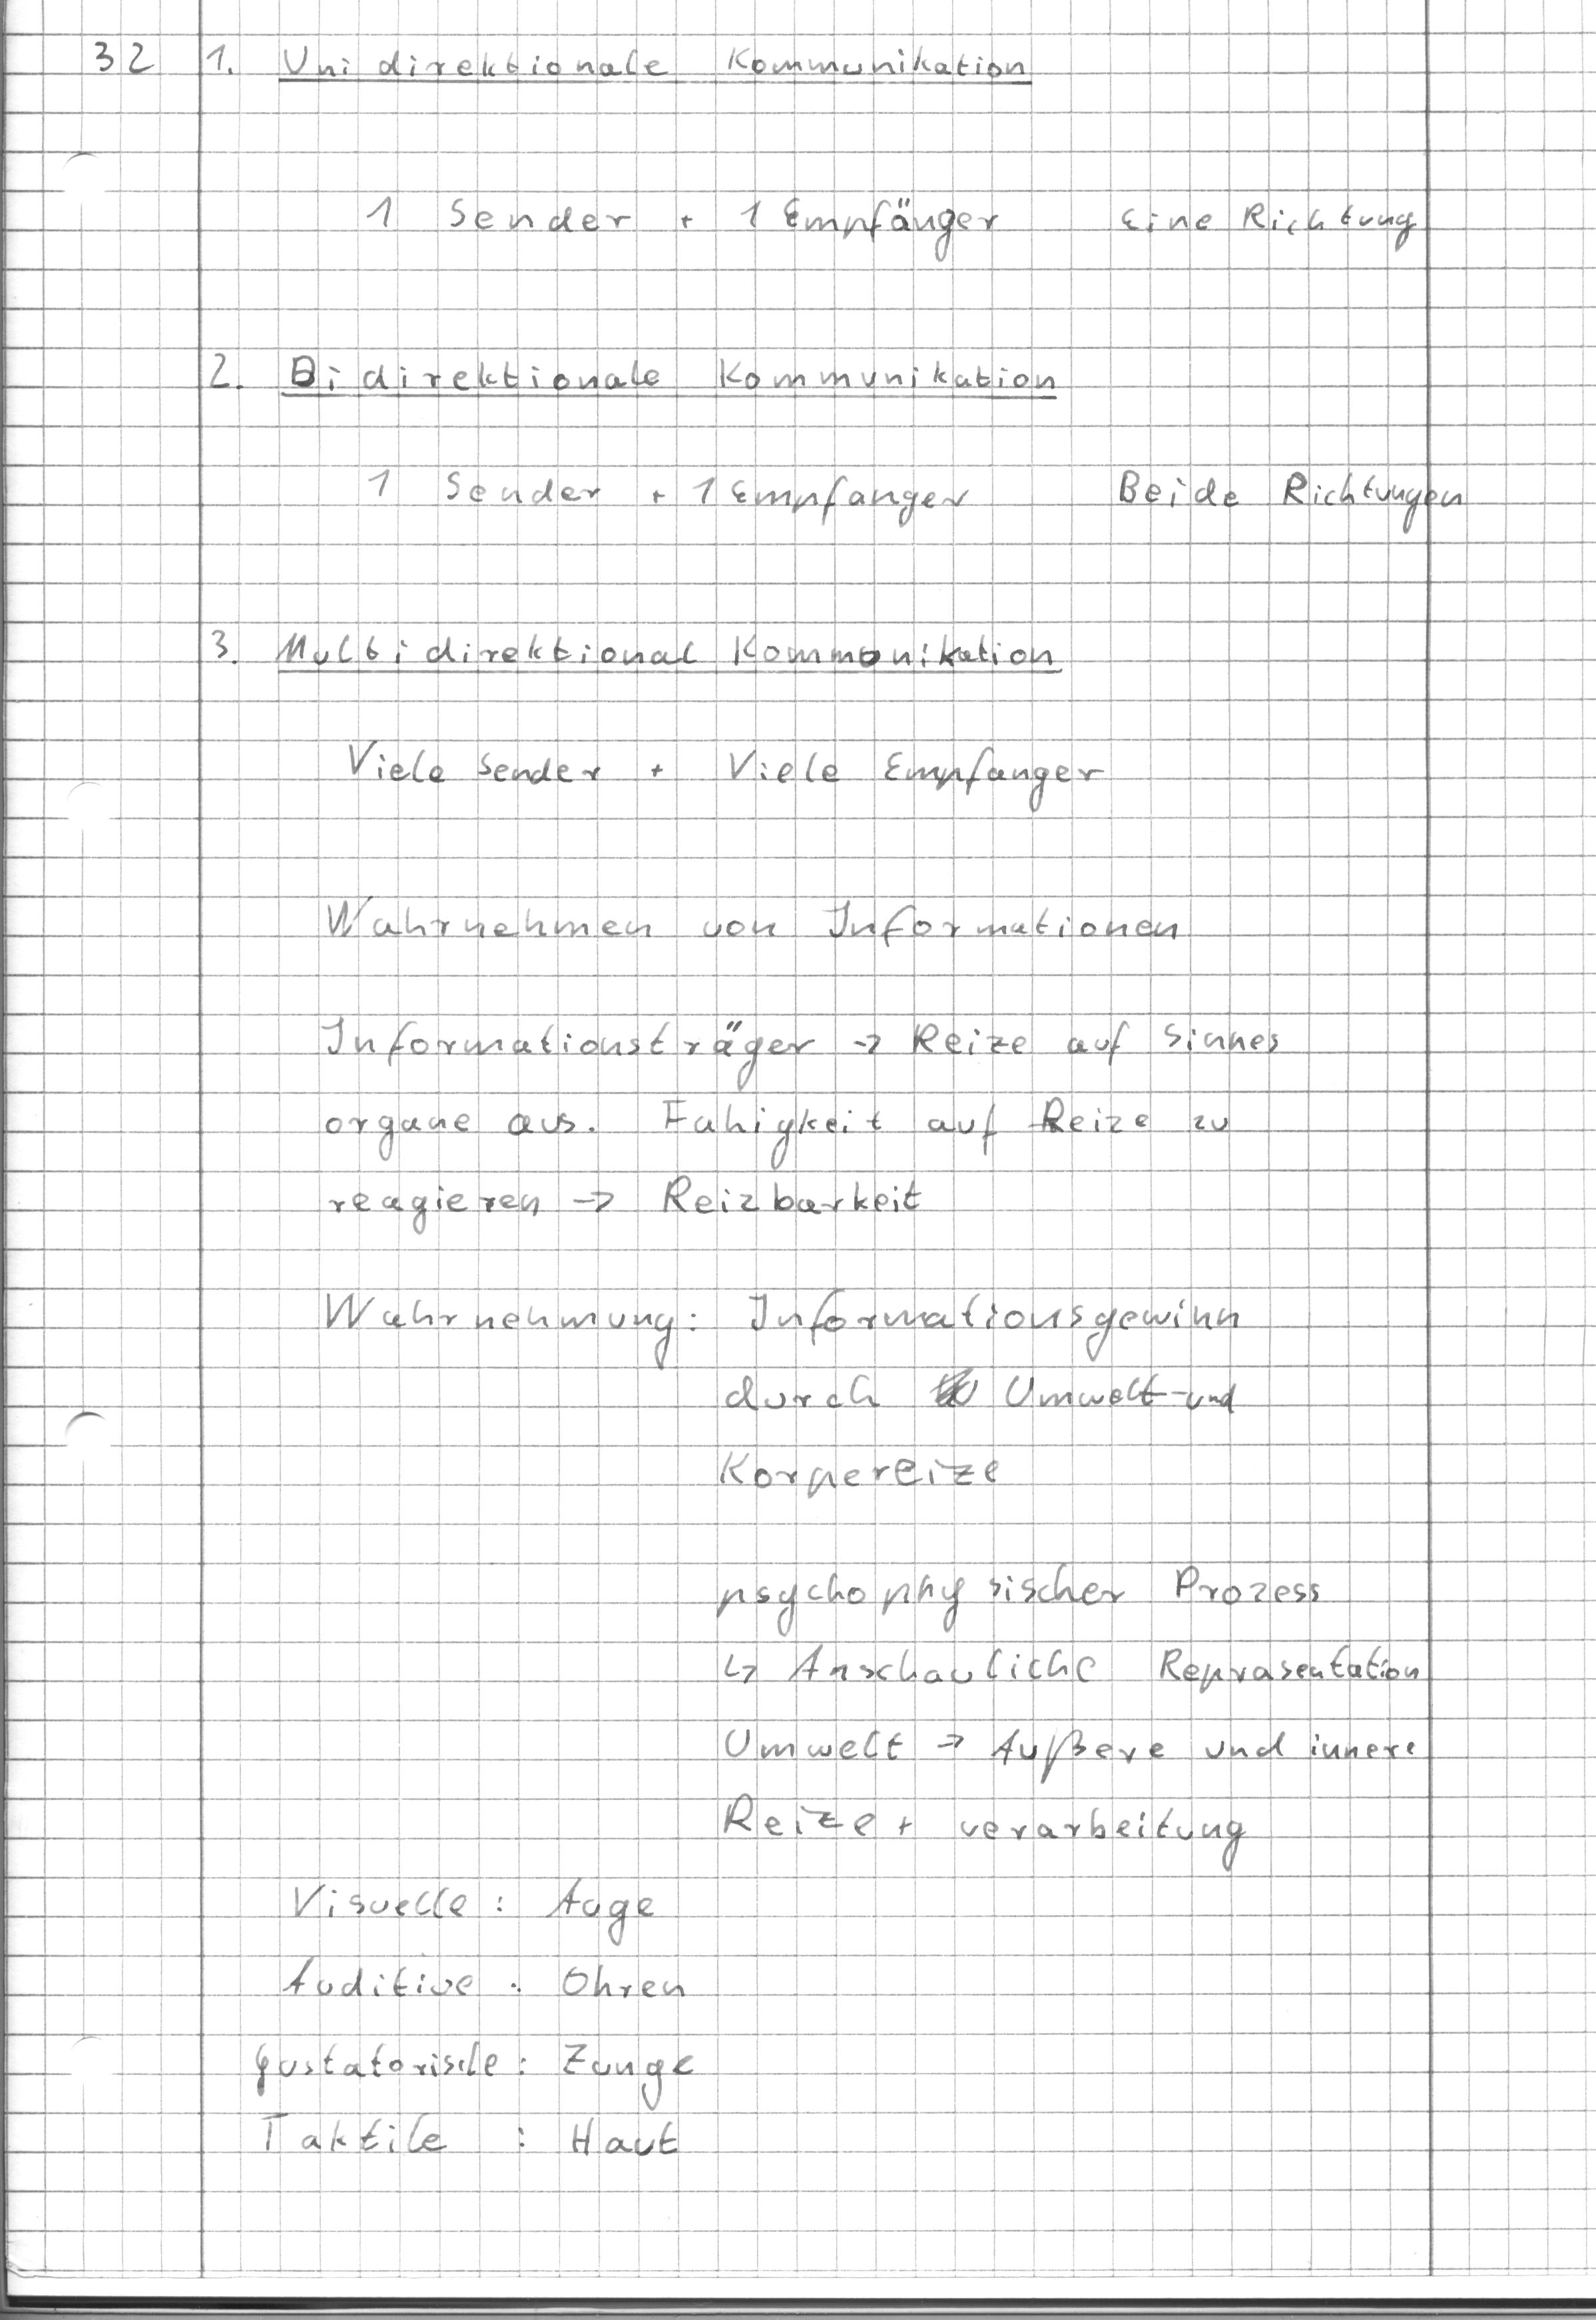 32 1. Unidirektionale Kommunikation
1 Sender + 1 Empfänger Eine Richtung
2. Bidirektionale Kommunikation
1 Sender + 1 Empfanger Beide Richtungen
3. Multidirektional Kommunikation
Viele Sender + Viele Empfanger
Wahrnehmen von Informationen
Informationsträger → Reize auf Sinnes
organe aus. Fahigkeit auf Reize zu
reagieren → Reizbarkeit
Wahrnehmung: Informationsgewinn
durch Umwelt-und
Korpereize
psychophysischer Prozess
↳ Anschauliche Reprasentation
Umwelt → Außere und innere
Reize + verarbeitung
Visuelle: Auge
Auditive: Ohren
gustatorische: Zunge
Taktile : Haut